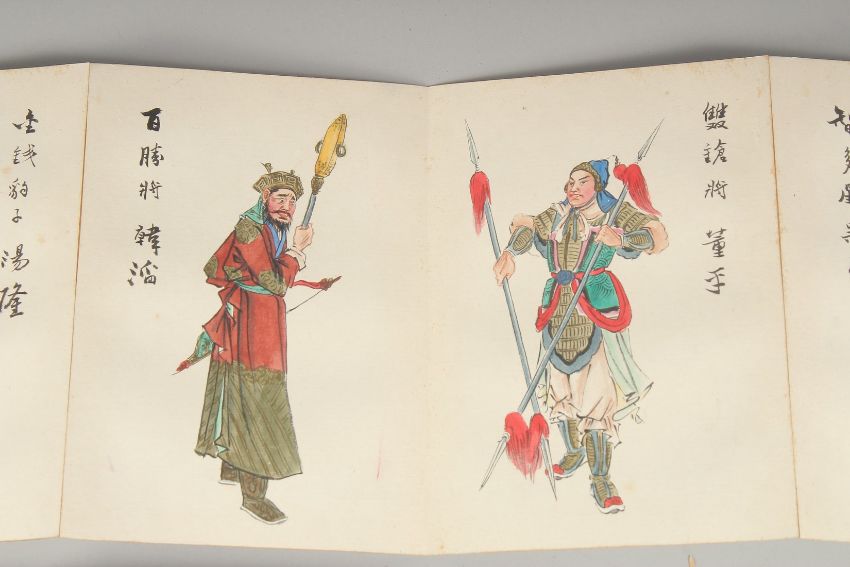 智多星吳
雙鎗將 董平
百勝將 韓滔
金錢豹子 湯隆